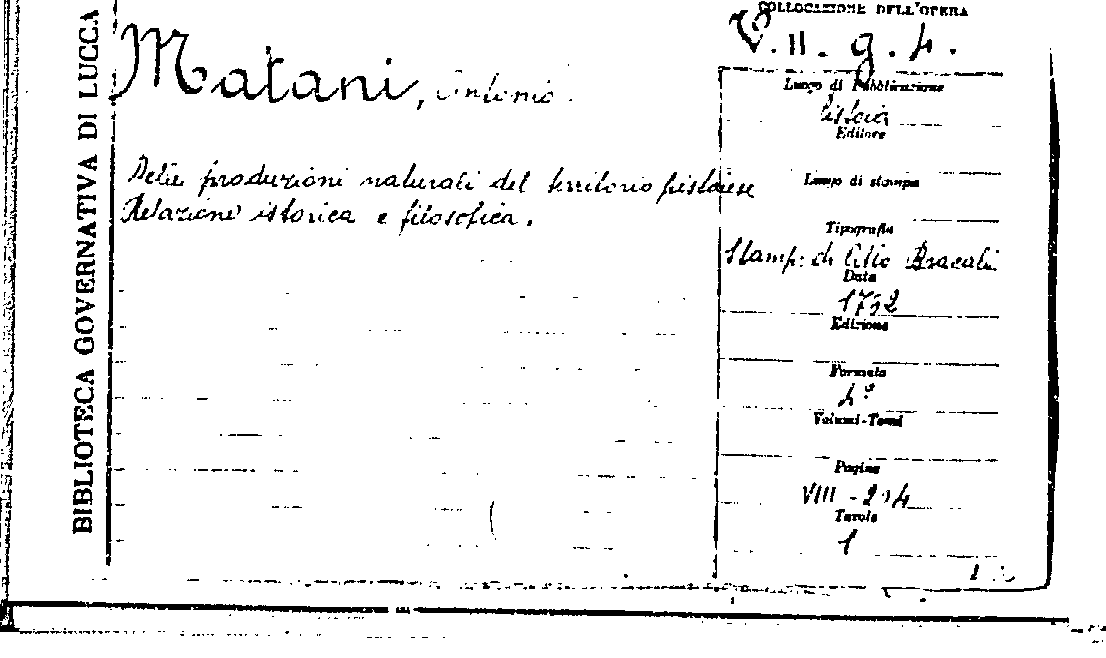 BIBLIOTECA GOVERNATIVA DI LUCCA
Matani, Antonio.
Delle produzioni naturali del territorio pistoiese
Relazione istorica e filosofica.
COLLOCAZIONE DELL'OPERA
V. II. g. 4.
Luogo di Pubblicazione
Pistoia
Editore
Luogo di stampa
Tipografia
Stamp: di Atto Bracali
Data
1762
Edizione
Formato
4º
Volumi-Tomi
Pagine
VIII - 204
Tavole
1